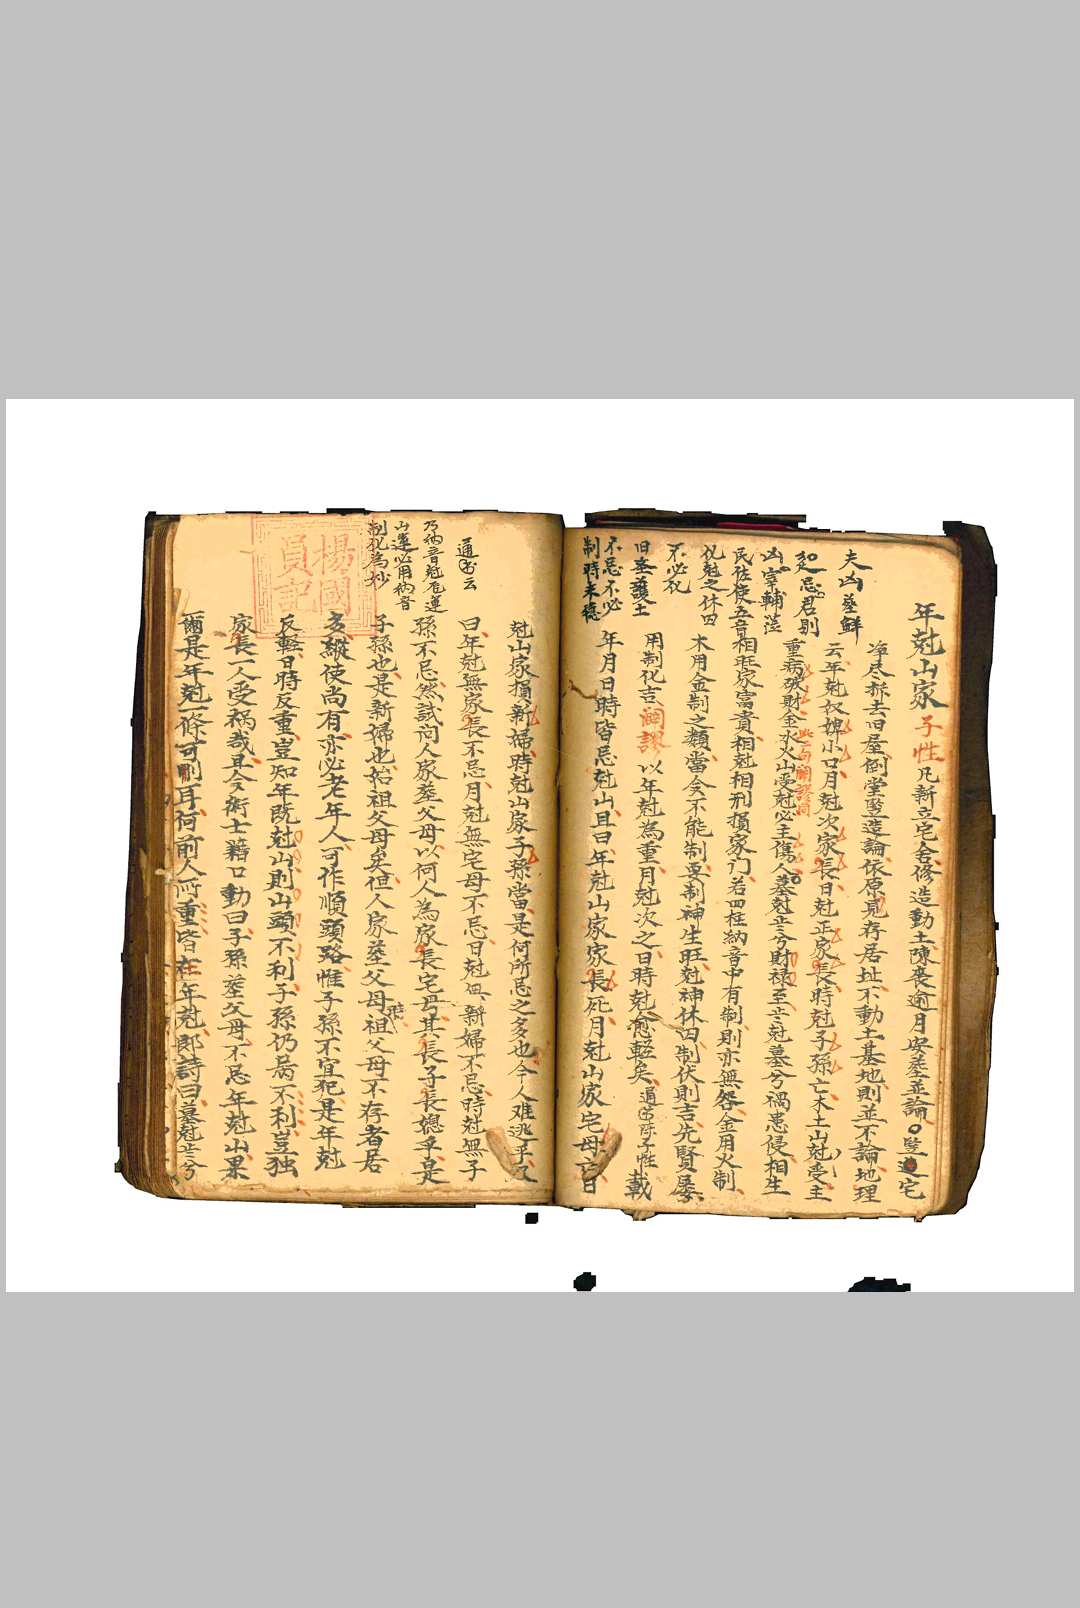 年尅山家子性凡新立宅舍修造動土陳丧逾月安塟並論竪造宅
净尽拆去旧屋倒堂竪造論依原見存居址不動土基地則並不論地理
云年尅奴婢小口月尅次家長日尅正家長時尅子孫亡木土山尅受主
重病破財金水火山受尅必主傷人墓尅亡兮財禄至亡尅墓兮禍患侵相生
相旺家富貴相尅相刑損家门若四柱納音中有制則亦無咎金用火制
木用金制之類當令不能制要制神生旺尅神休囚制伏則吉先賢屡
用制化吉闢謬以年尅為重月尅次之日時尅愈軽矣通书际子性載
年月日時皆忌尅山且曰年尅山家家長死月尅山家宅母亡日
夫凶塟鮮
忌君别
凶宰輔
民佐使五音
化尅之休囚
不必化
旧塟護土
不忌不必
制時未穏
尅山家損新婦時尅山家子孫當是何所忌之多也今人难逃乎又
曰年尅無家長不忌月尅無宅母不忌日尅無新婦不忌時尅無子
孫不忌然試问人家塟父母以何人為家長宅母其長子長媳乎是
子孫也是新婦也始祖父母矣但人家塟父母祖父母不存者居
多縱使尚有亦必老年人可作順頭路惟子孫不宜犯是年尅
反軽日時反重豈知年既尅山則山頭不利子孫仍為不利豈独
家長一人受禍哉且今術士藉口動曰子孫塟父母不忌年尅山果
爾是年尅一條可刪耳何前人所重皆在年尅郎詩曰墓尅亡兮
通书云
乃納音尅厄運
山運必用納音
制化為妙
楊國
員記